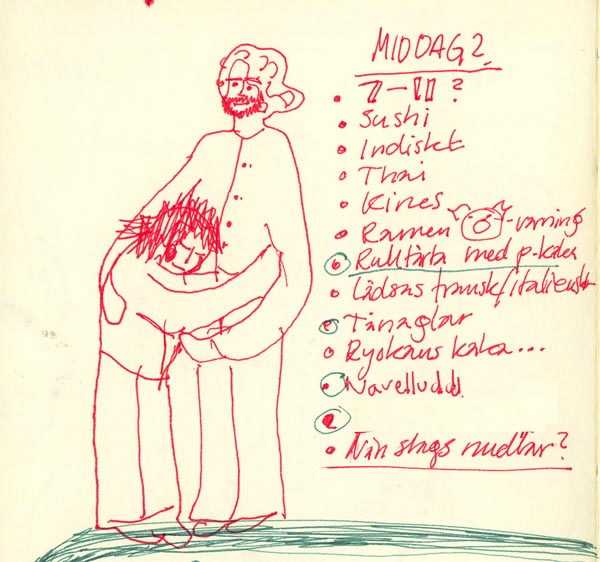 MIDDAG?
Sushi
Indiskt
Thai
Kines
Ramen -varning
med p-kaka
Lådans fransk/italienskt
Tånaglar
Ryokans kaka...
Navelludd
Nån slags nudlar?